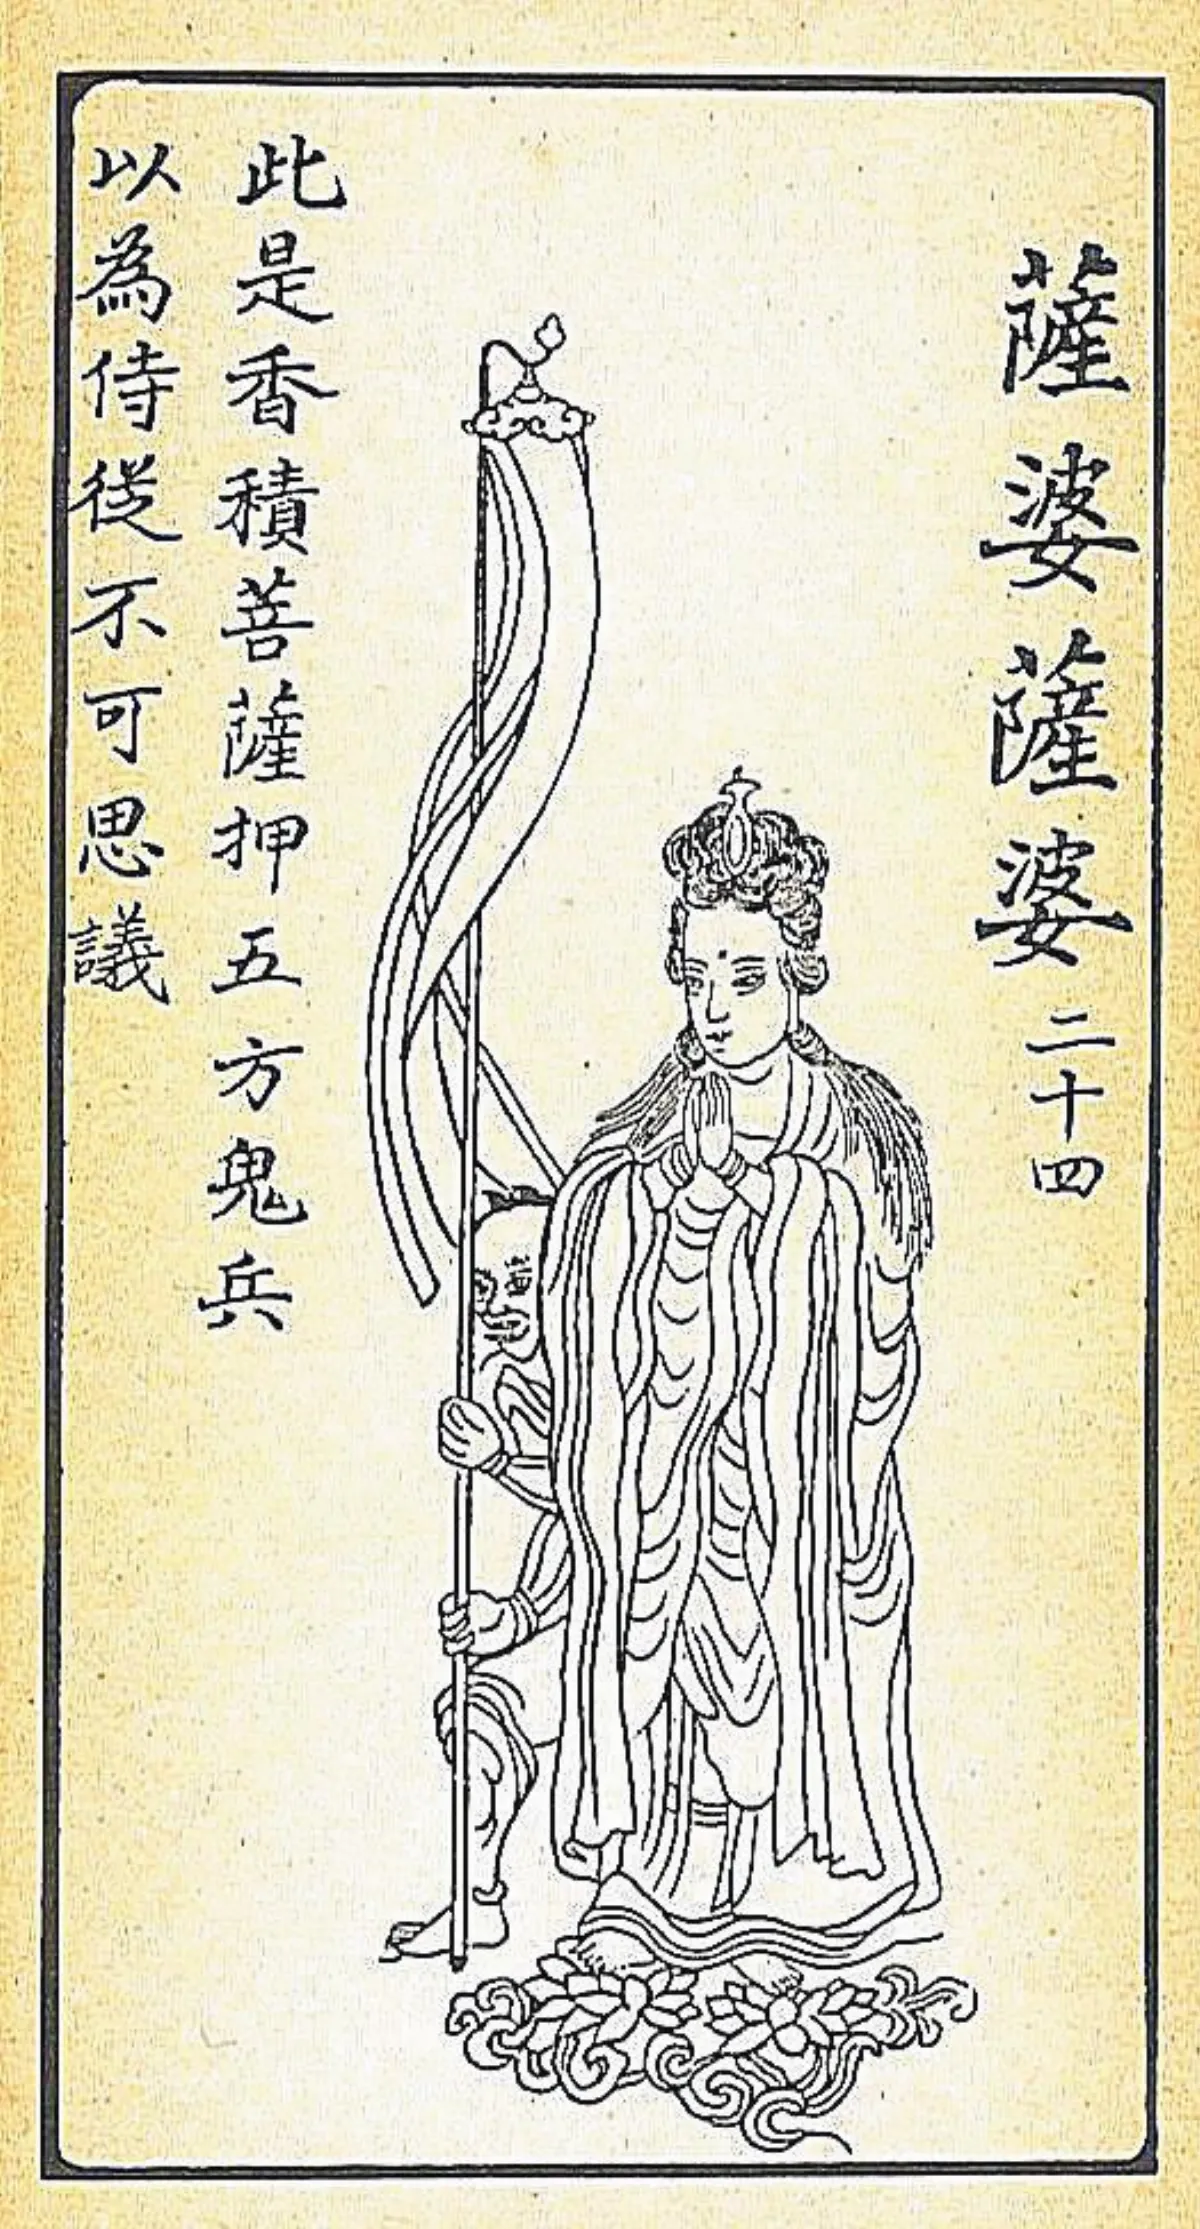 薩婆薩婆二十四
此是香積菩薩押五方鬼兵
以為侍從不可思議